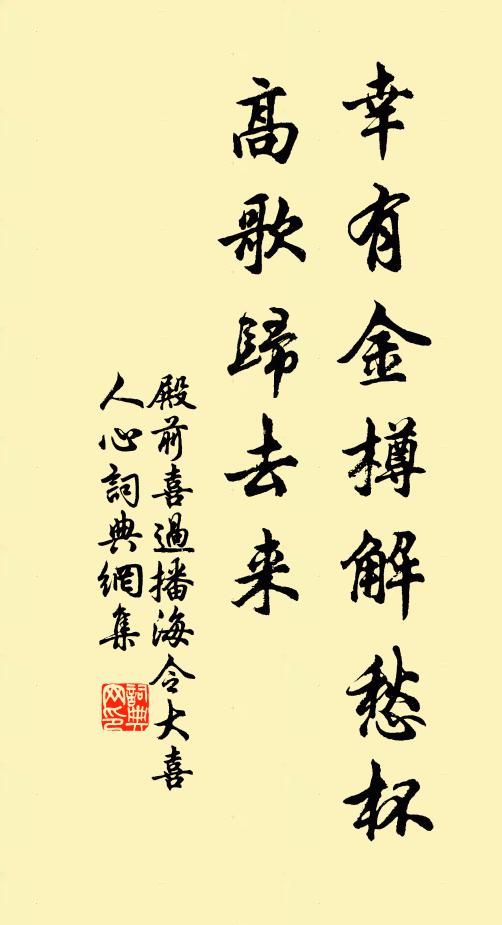 幸有金樽解愁杯
高歌歸去来
殿前喜過播海令大喜
人心詞典網集
詞典
网印